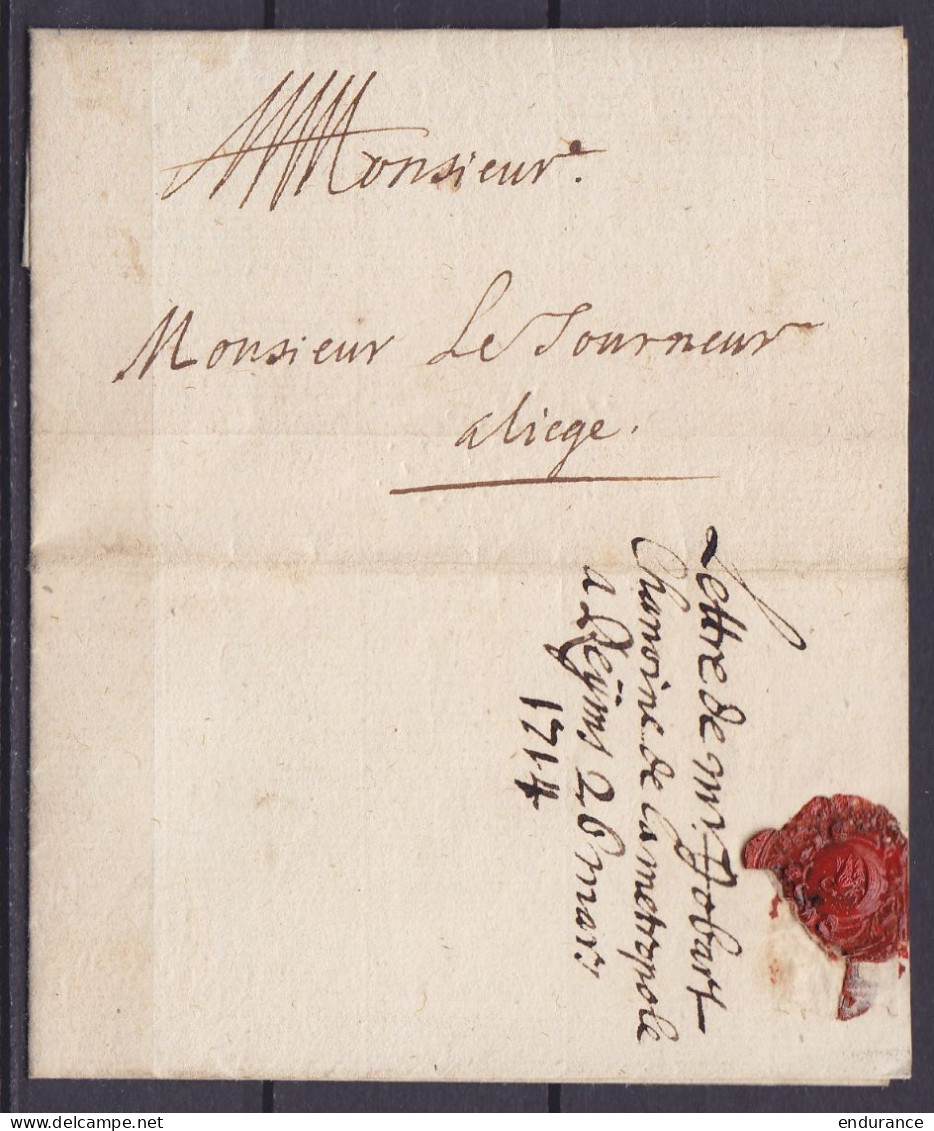 Monsieur
Monsieur Le Tourneur
a Liege.
Lettre de mr. Jobart
Chanoine de la metropole
a Reÿms 26 mars
1714
endurance